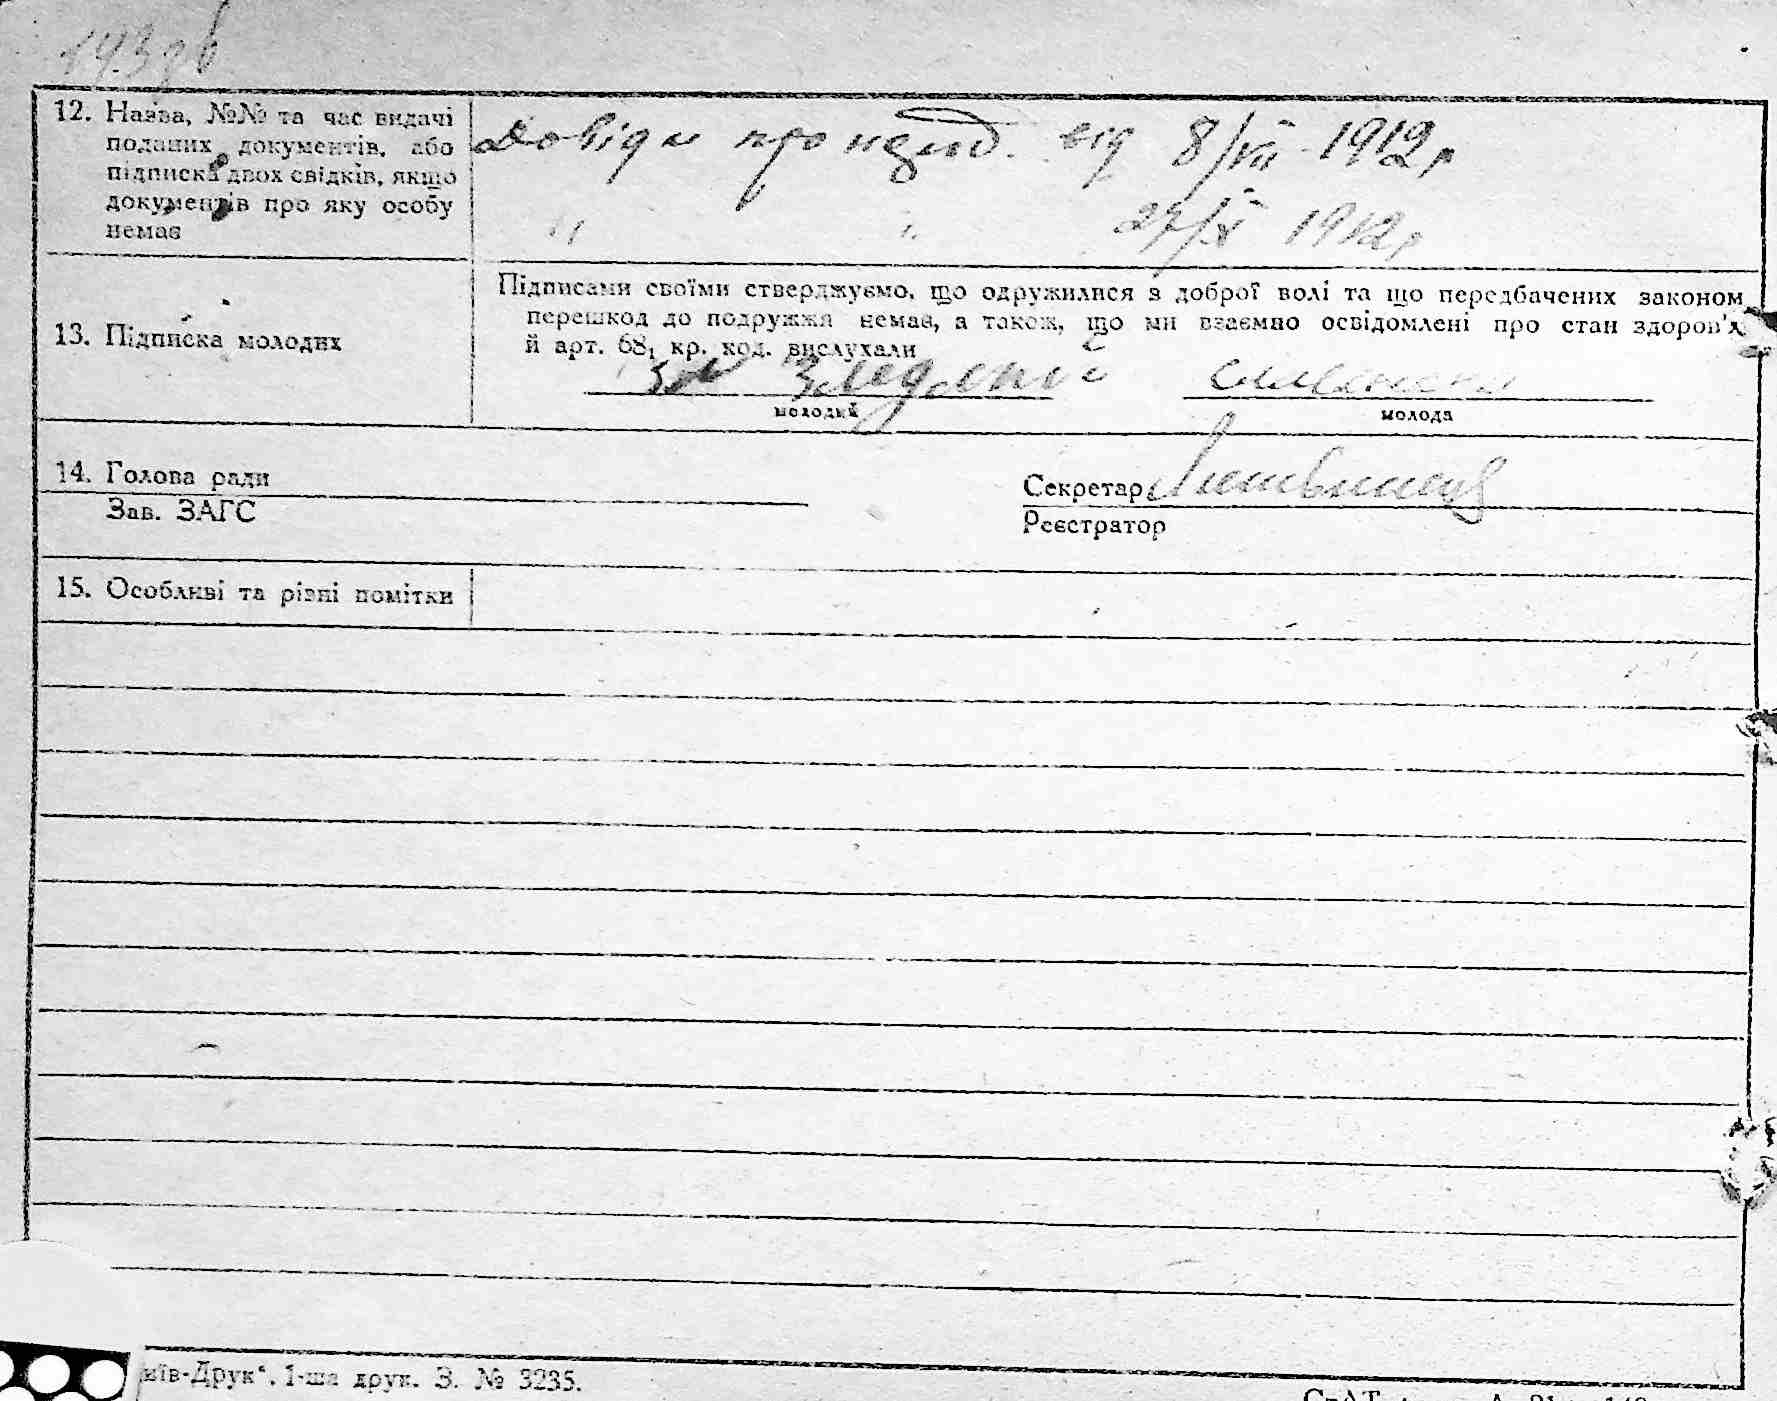 143зб
12. Назва, №№ та час видачі
поданих документів, або
підписка двох свідків, якщо
документів про яку особу
немає
Довідки про народ. від 8/VII 1912р
" " 27/IX 1912р
13. Підписка молодих
Підписами своїми стверджуємо, що одружилися з доброї волі та що передбачених законом
перешкод до подружжя немає, а також, що ми взаємно освідомлені про стан здоров'я
й арт. 68, кр. код. вислухали
молодий
молода
14. Голова ради
Зав. ЗАГС
Секретар
Реєстратор
15. Особливі та різні помітки
иїв-Друк". 1-ша друк. З. № 3235.